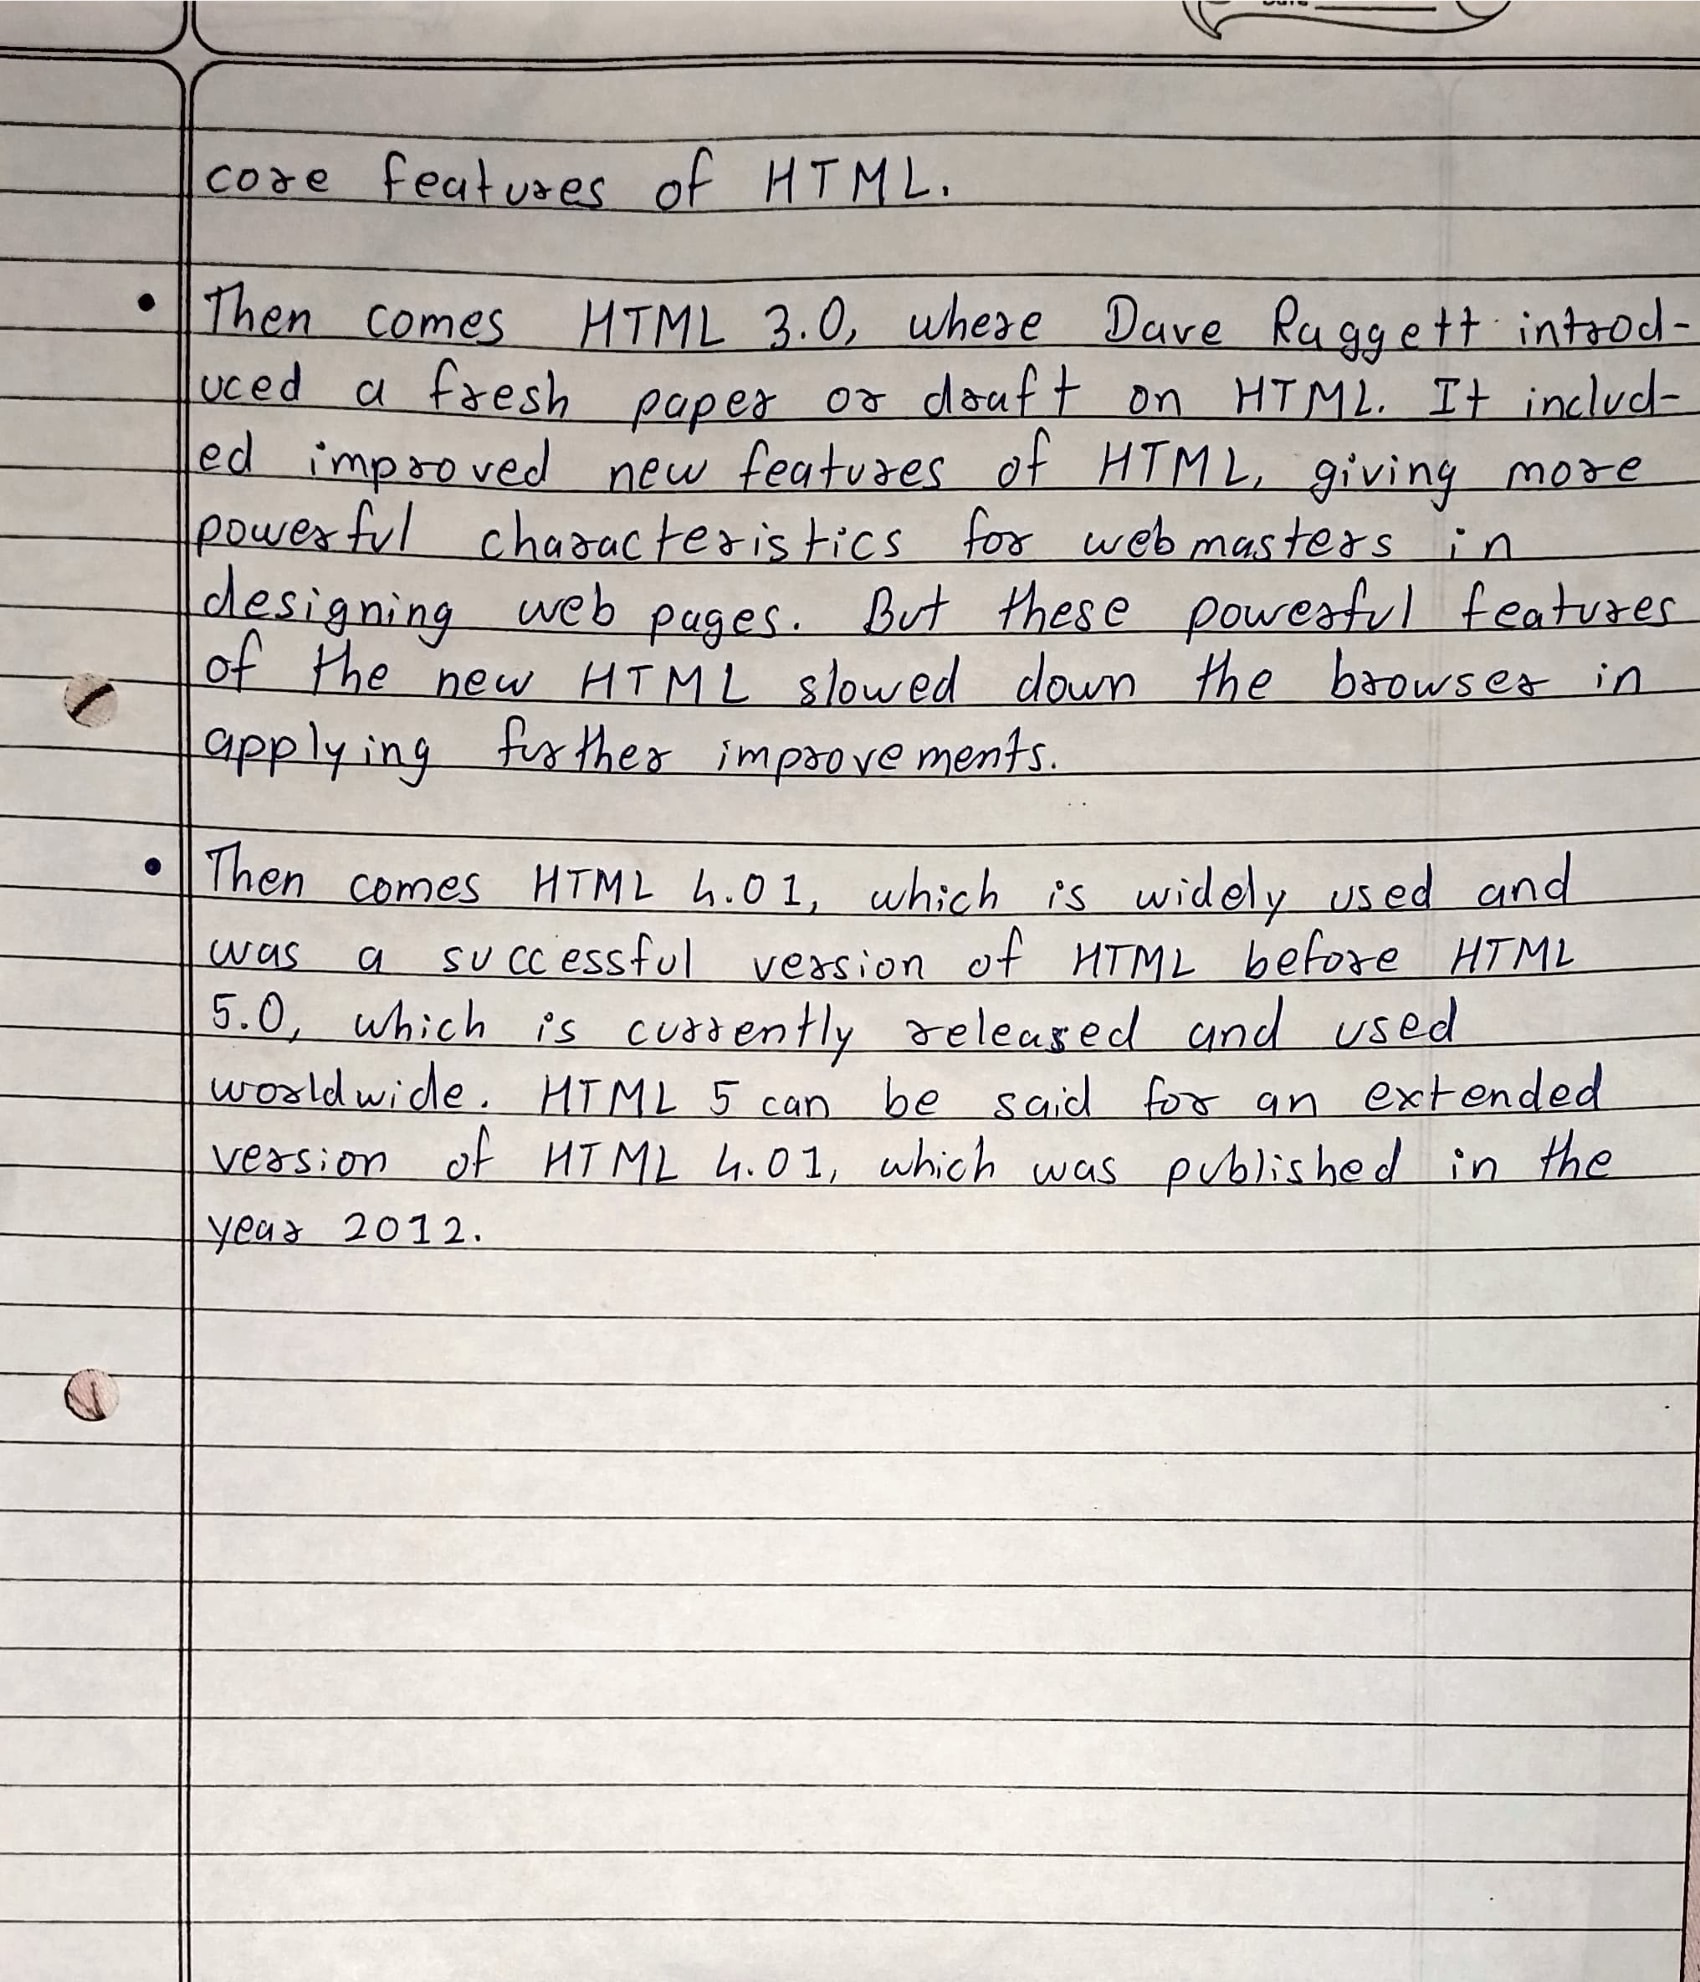 core features of HTML.
• Then comes HTML 3.0, where Dave Raggett introd-
uced a fresh paper or draft on HTML. It includ-
ed improved new features of HTML, giving more
powerful characteristics for webmasters in
designing web pages. But these powerful features
of the new HTML slowed down the browser in
applying further improvements.
• Then comes HTML 4.01, which is widely used and
was a successful version of HTML before HTML
5.0, which is currently released and used
worldwide. HTML 5 can be said for an extended
version of HTML 4.01, which was published in the
year 2012.